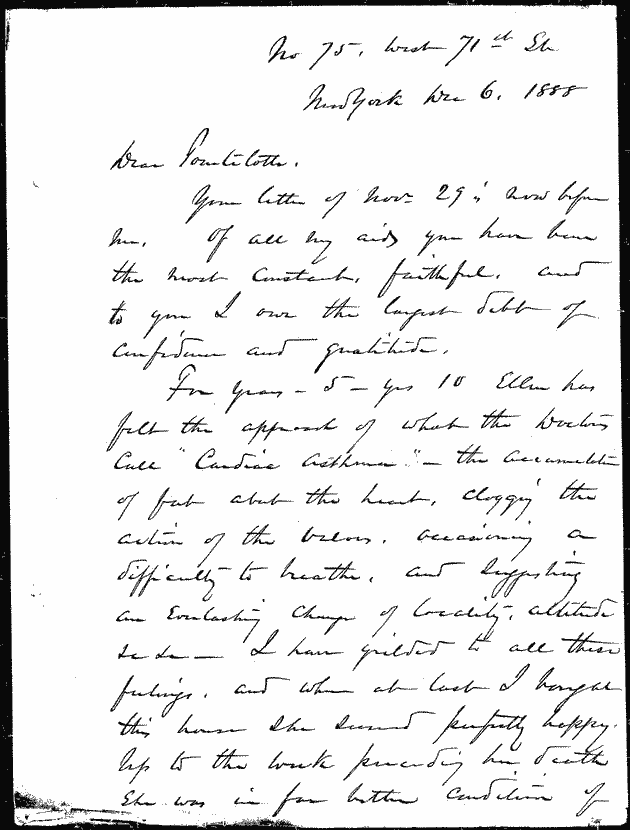 No 75. West 71th St.
New York Dec 6. 1888
Dear
Your letter of Nov. 29 is now before
me. Of all my aids you have been
the most constant, faithful, and
to you I owe the largest debt of
confidence and gratitude.
For years - 5 - yes 10 Ellen has
felt the approach of what the Doctors
Call "Cardiac Asthma" - the accumulation
of fat about the heart, clogging the
action of the valves, occasioning a
difficulty to breathe, and suggesting
an Everlasting Change of locality, altitude
&c &c - I have yielded to all these
feelings, and when at last I bought
this house She seemed perfectly happy.
Up to the week preceding her death
She was in far better condition of